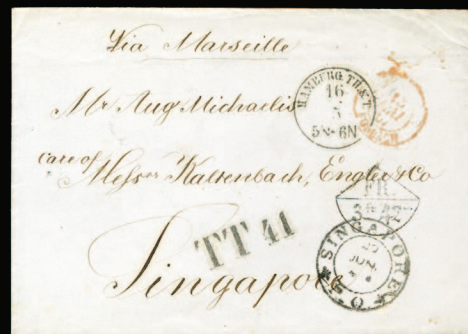 Via Marseille
HAMBURG TH.&T.
16
5
5N-6N
Mr Aug Michaelis
care of
Messrs Kaltenbach, Engler & Co
FR.
TT 41
SINGAPORE
JUN.
Singapore